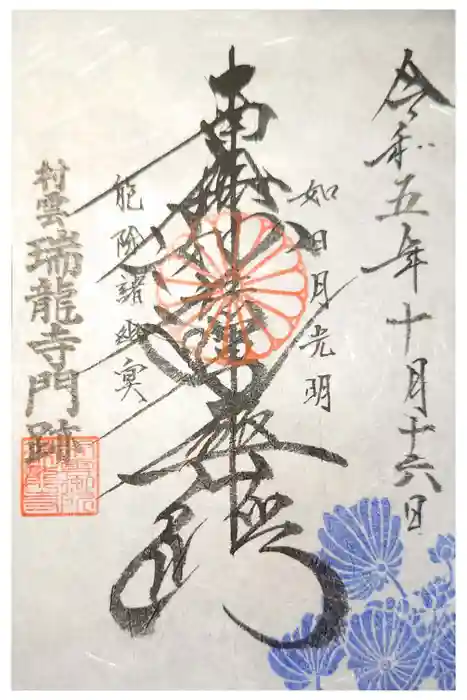 令和五年十月十六日
如日月光明
南無妙法蓮華経
能除諸幽冥
村雲
瑞龍寺門跡